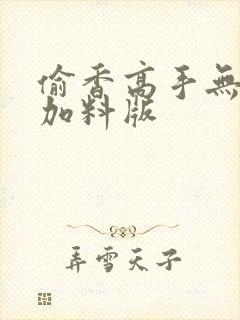 偷香高手無
加料版
弄雪天子